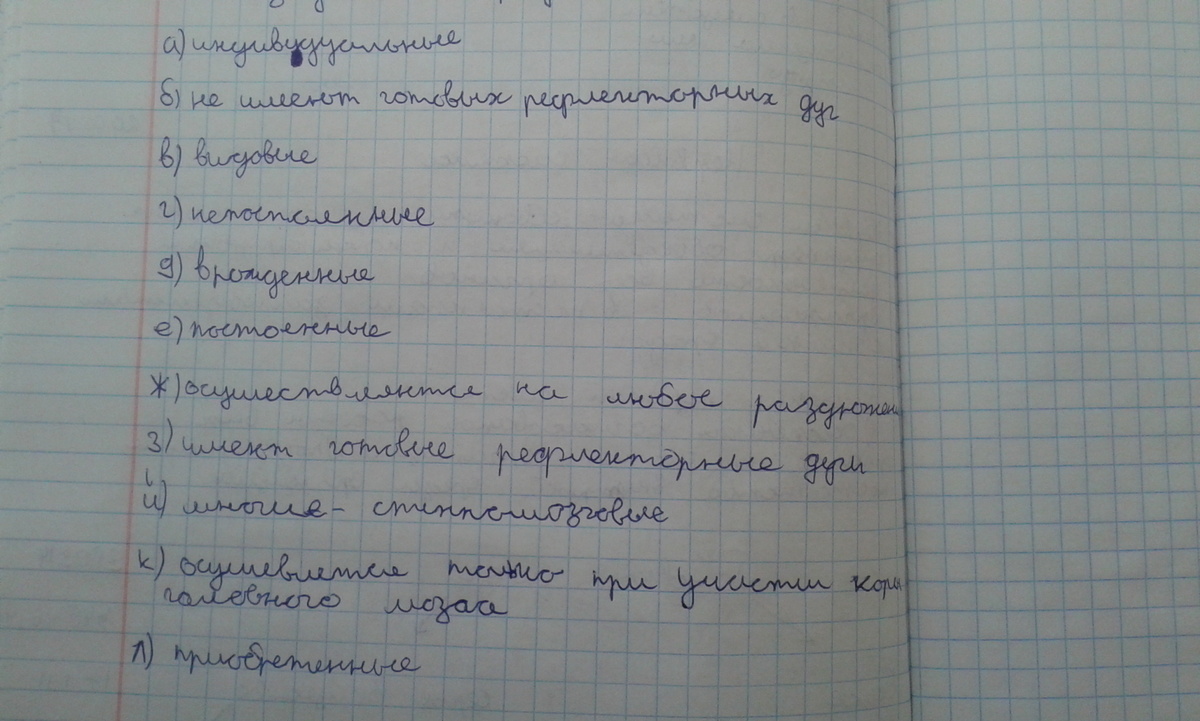 а) индивидуальные
б) не имеют готовых рефлекторных дуг
в) видовые
г) непостоянные
д) врожденные
е) постоянные
ж) осуществляются на любое
з) имеют готовые рефлекторные дуги
и) многие - спинномозговые
к) осущевляется только при участии коры
головного мозга
л) приобретенные